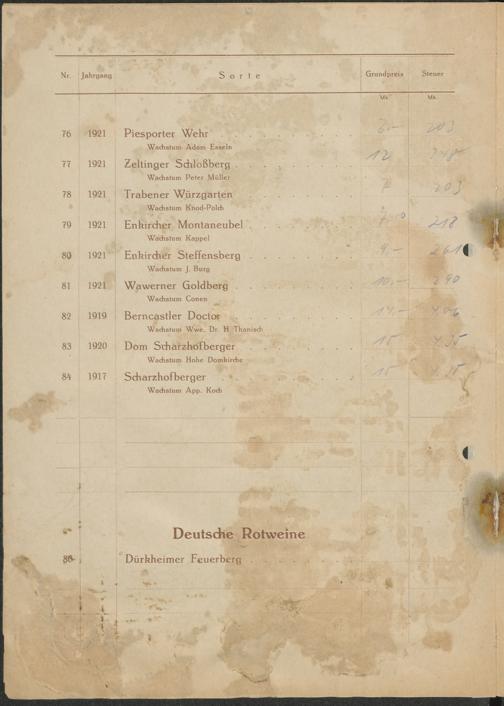 Nr. Jahrgang Sorte Grundpreis Steuer
Mk. Mk.
76 1921 Piesporter Wehr 203
Wachstum Adam Esseln
77 1921 Zeltinger Schloßberg 12
Wachstum Peter Müller
78 1921 Trabener Würzgarten 203
Wachstum Knod-Polch
79 1921 Enkircher Montaneubel 218
Wachstum Kappel
80 1921 Enkircher Steffensberg 9.– 261
Wachstum J. Burg
81 1921 Wawerner Goldberg 10.– 290
Wachstum Conen
82 1919 Berncastler Doctor 14.– 4,06
Wachstum Wwe. Dr. H Thanisch
83 1920 Dom Scharzhofberger 15 4,35
Wachstum Hohe Domkirche
84 1917 Scharzhofberger 15 4,35
Wachstum App. Koch
Deutsche Rotweine
Dürkheimer Feuerberg